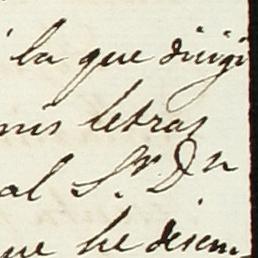 la que dirigi
mis letras
al Sr. Dn
que he desem-